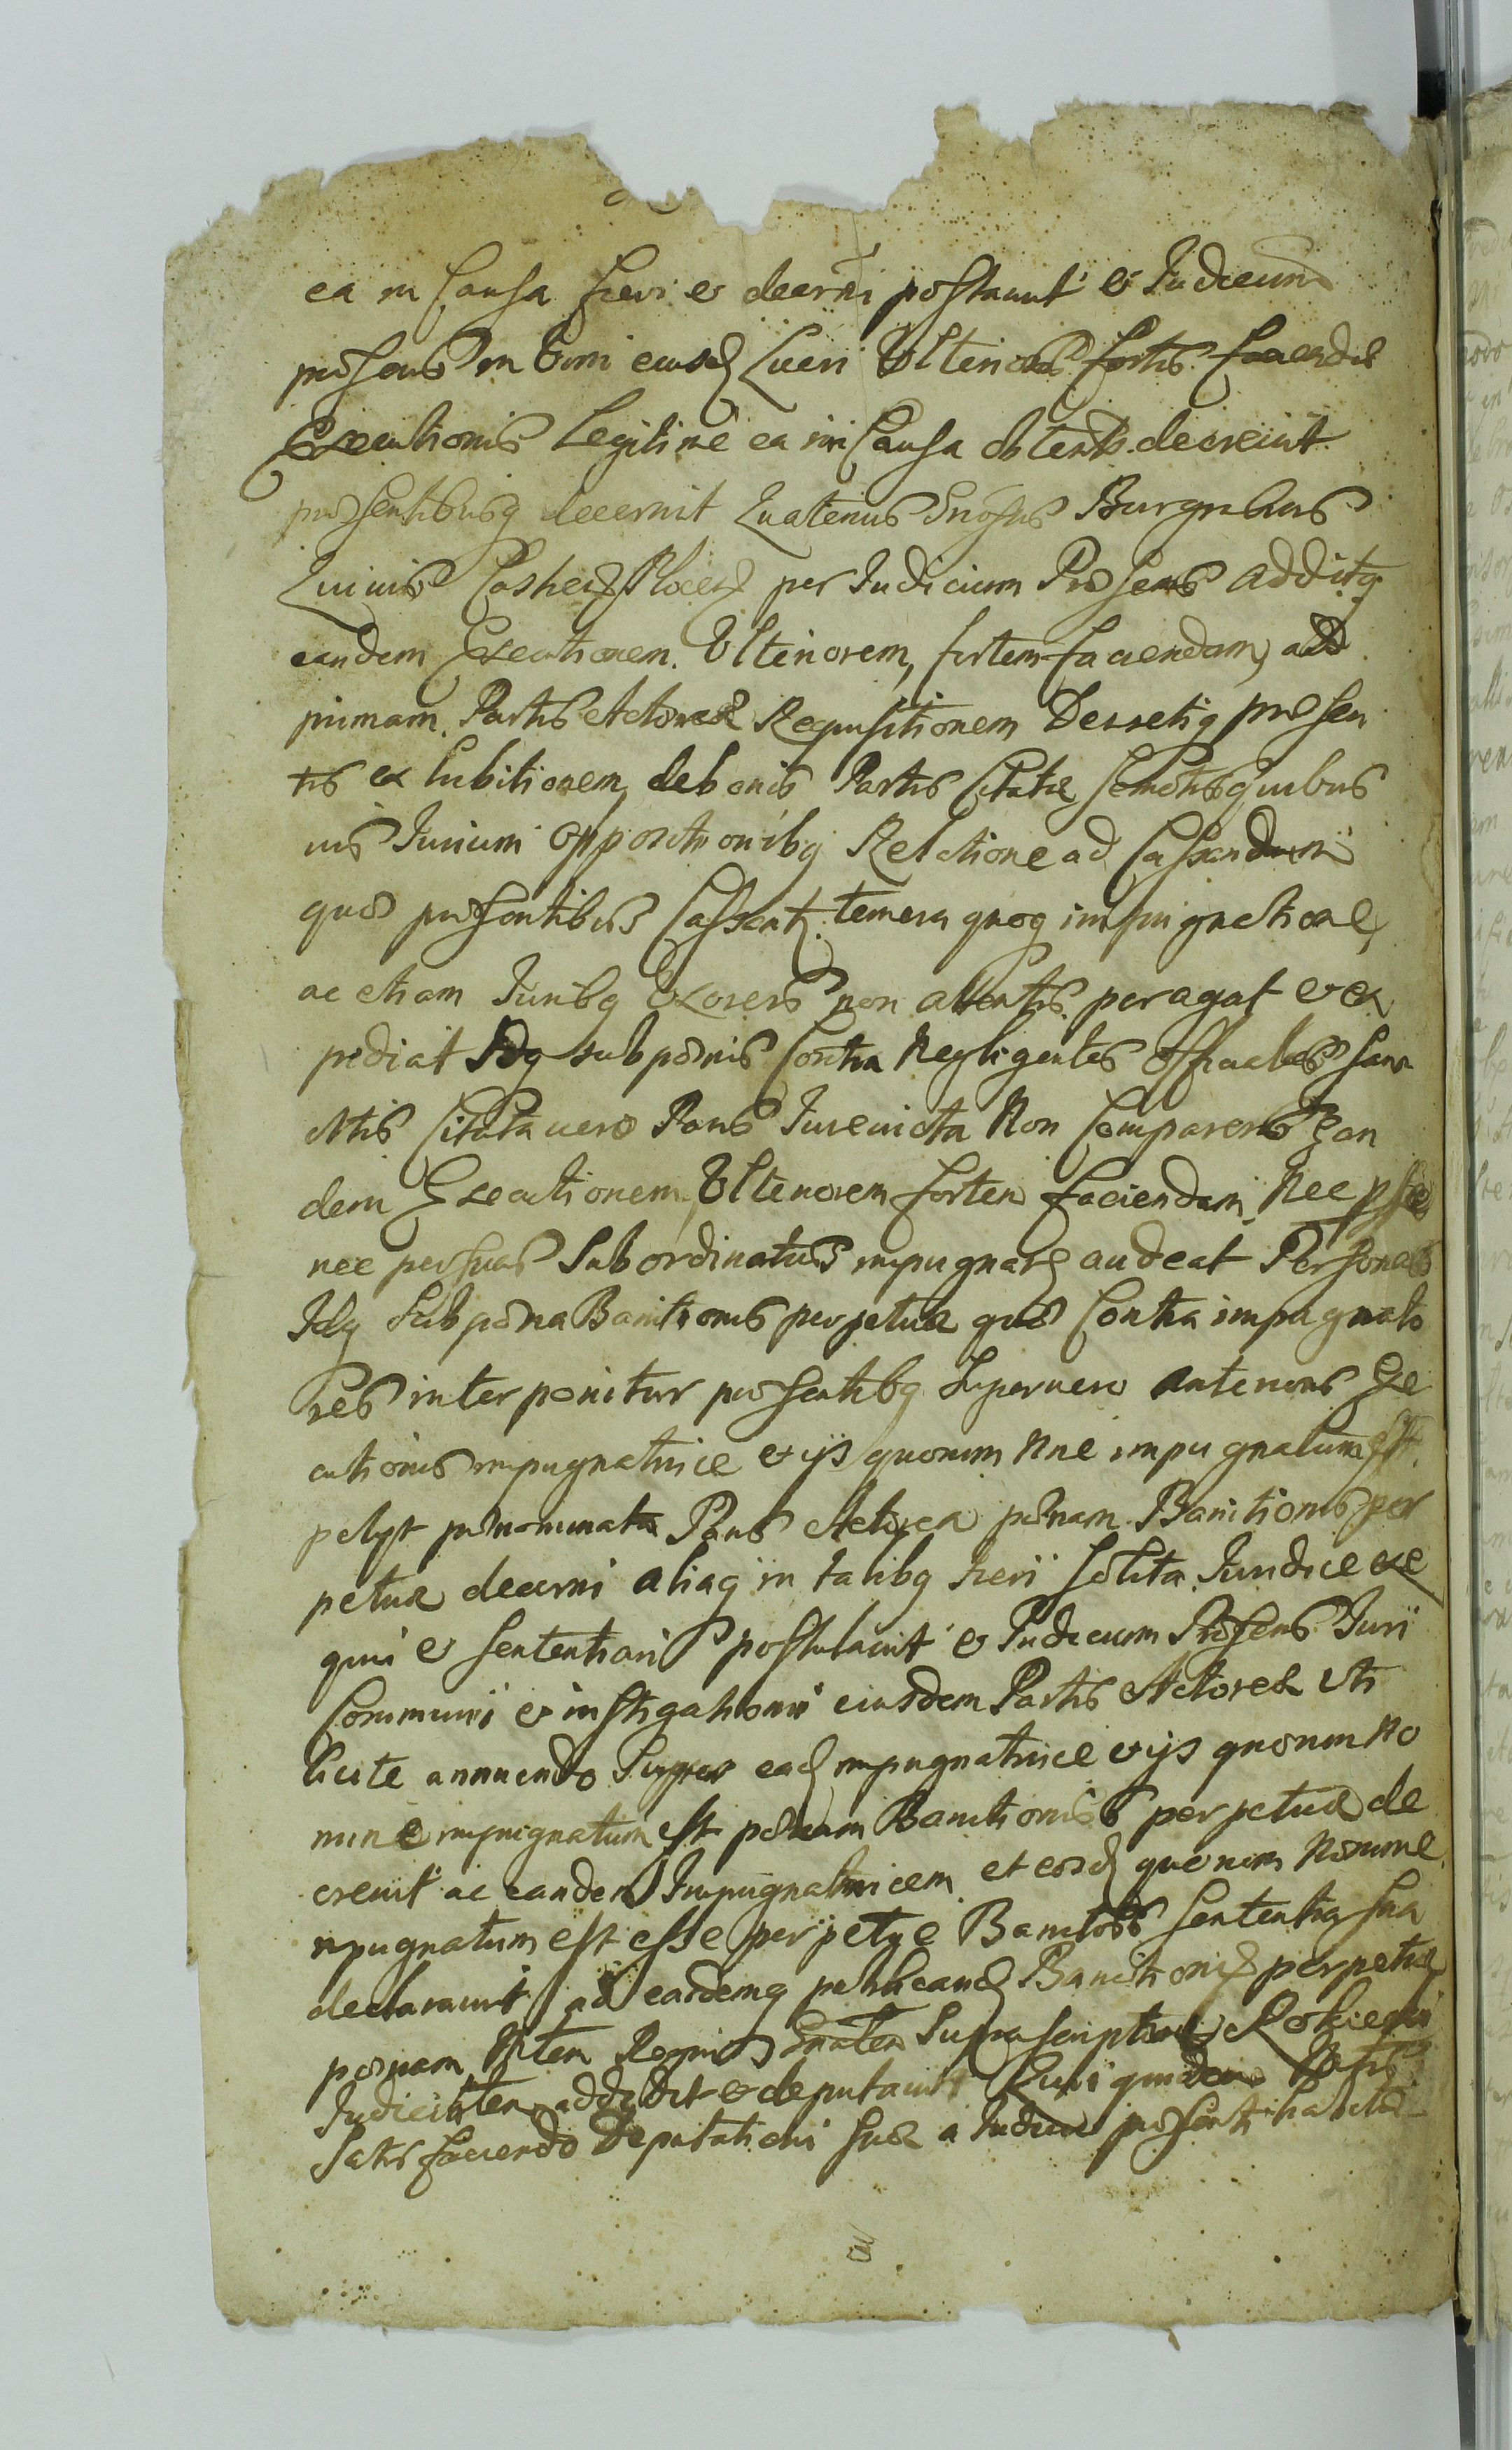 ea in Causa fieri et decerni postulauit et Iudicium
præsens in Vim eiusd Lucri Vlterioris fortis faciendæ
Executionis legitime ea in Causa obtentæ decreuit
præsentibusq decernit Quatenus Gnosus Burgrabius
Quiuis Castrei Plocen per Iudicium Præsens additq
eandem Executionem Vlteriorem, fortem faciendam, ad
primam Partis Actoreæ Requisitionem Decretiq præsen
tis exhibitionem de bonis Partis Citatæ semotis quibus
uis Iurium oppositionibq Relatione ad Cassandum
quæ præsentibus Cassat temera quoq impugnatione
ac etiam Iuribq Vxoreis non attentis peragat et ex
pediat Idq sub pœnis Contra Negligentes officiales san
citis Citata uero Pars Iureuicta Non Comparens Ean
dem Executionem Vlteriorem fortem faciendam Nec p se
nec per suas Subordinatas impugnare audeat Personas
Idq Sub pœna Banitionis perpetuæ quæ Contra impugnato
res interponitur præsentibq Super uero anterioris Exe
cutionis impugnatrice et ijs quorum Nne impugnatum est
petijt prænominata Pars Actorea pœnam Banitionis per
petuæ decerni aliaq in talibq fieri solita Iuridice exe
qui et sententiari postulauit et Iudicium Præsens Iuri
Communi et instigationi eiusdem Partis Actoreæ Vti
licite annuendo Super ead impugnatrice et ijs quorum No
mine impugnatum est pœnam Banitionis perpetuæ de
creuit ac eandem Impugnatricem et eosd quorum Nomine
impugnatum est esse perpetue Banitos sententia sua
declarauit ad eandemq publicand Banitionis perpetuæ
pœnam Mtem Regni Gnalem Suprascriptum Rokicki
Iudicij addidit et deputauit Qui quidem
Satisfaciendo Deputationi suæ a Iudicio præsenti